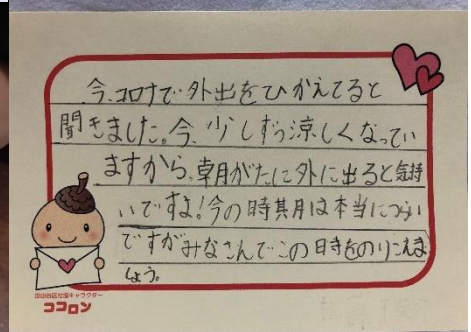 今、コロナで外出をひかえてると
聞きました。今、少しずつ涼しくなってい
ますから、朝がたに外に出ると気持
いですよ！今の時期は本当につらい
ですがみなさんでこの時をのりこえま
しょう。
ココロン